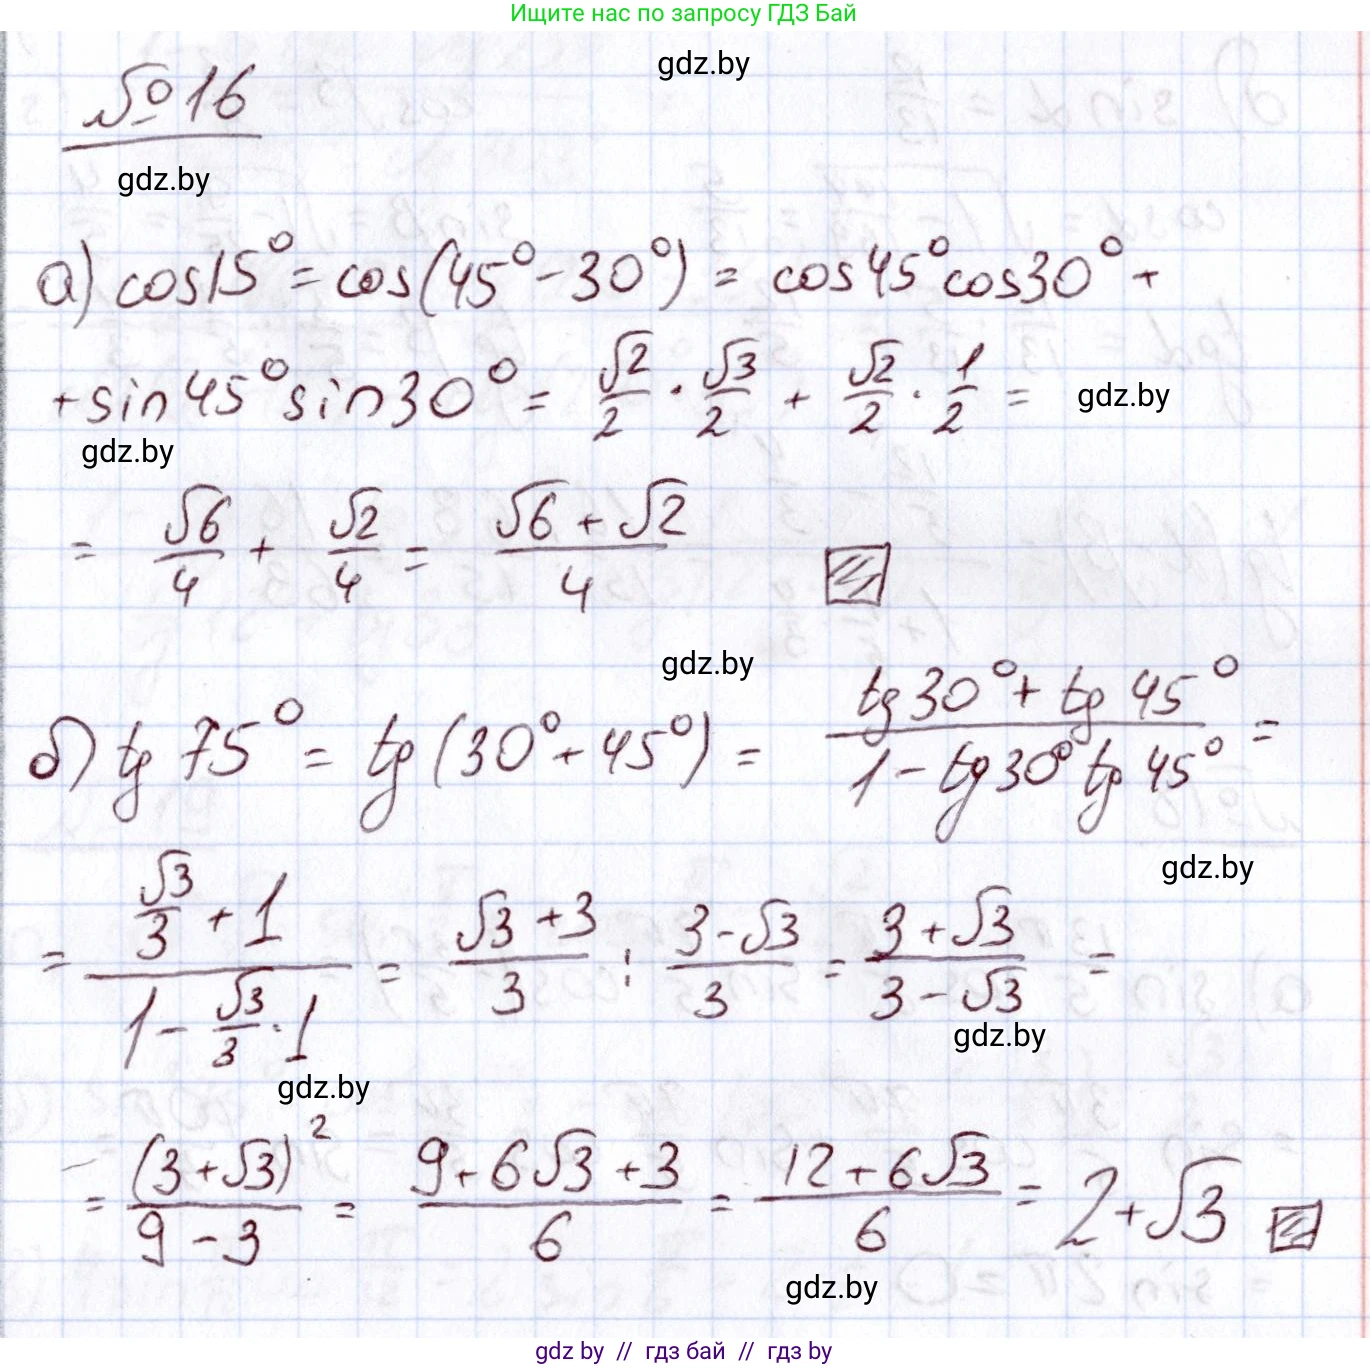 Ищите нас по запросу ГДЗ Бай
gdz.by
№16
gdz.by
а) cos15° = cos(45° - 30°) = cos45°cos30° +
+ sin45°sin30° = √2/2 · √3/2 + √2/2 · 1/2 =
gdz.by
gdz.by
= √6/4 + √2/4 = (√6 + √2)/4
gdz.by
б) tg 75° = tg(30° + 45°) = (tg30° + tg 45°)/(1 - tg30° tg45°) =
gdz.by
= (√3/3 + 1)/(1 - √3/3 · 1) = (√3 + 3)/3 : (3 - √3)/3 = (3 + √3)/(3 - √3) =
gdz.by
gdz.by
= (3 + √3)²/(9 - 3) = (9 + 6√3 + 3)/6 = (12 + 6√3)/6 = 2 + √3
gdz.by
gdz by // гдз бай // гдз by